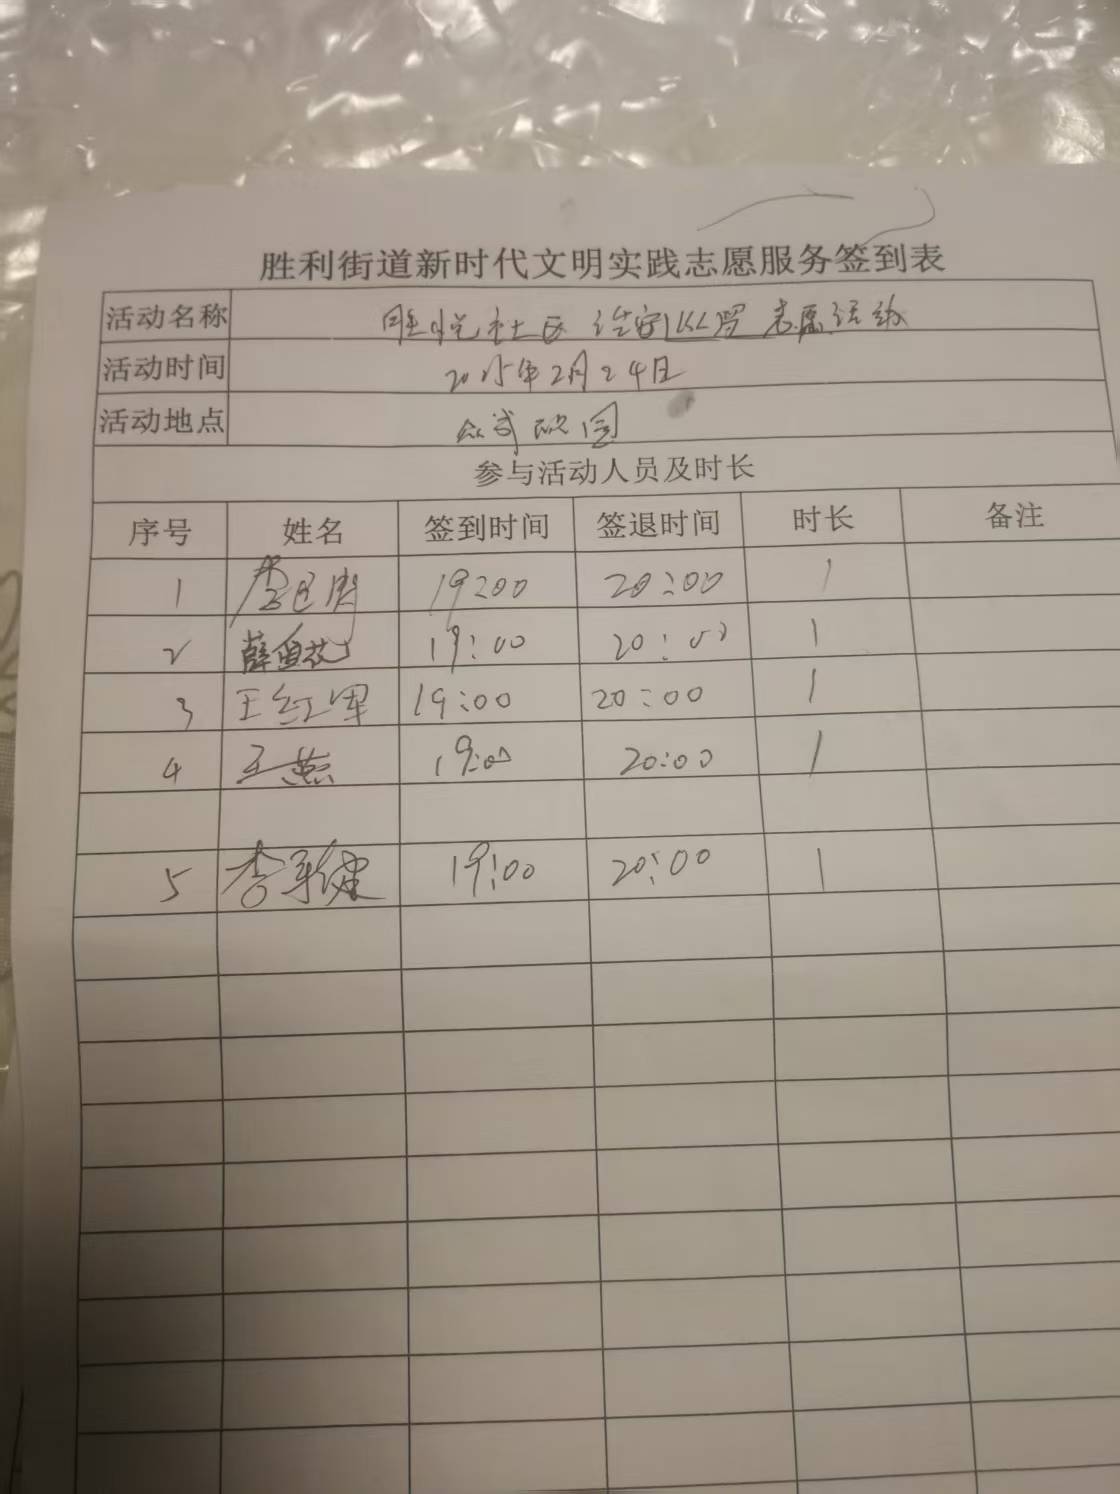 胜利街道新时代文明实践志愿服务签到表
活动名称 社区 治安巡逻 志愿活动
活动时间 2025年2月24日
活动地点
参与活动人员及时长
序号 姓名 签到时间 签退时间 时长 备注
1 19:00 20:00 1
2 薛鱼花 19:00 20:00 1
3 王红军 19:00 20:00 1
4 王燕 19:00 20:00 1
5 李军健 19:00 20:00 1